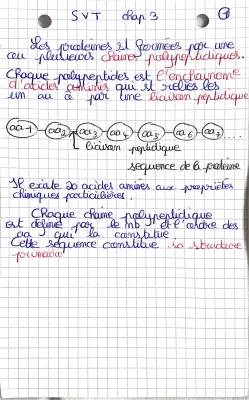 SVT chap 3 ①
Les protéines st formées par une
ou plusieurs chaines polypeptidiques.
Chaque polypeptides est l'enchainement
d'acides aminés qui st reliés les
un au à par une liaison peptidique
aa-1 aa2 aa3 aa4 aa5 aa.6 aa7 ....
liaison peptidique
sequence de la proteine
Il existe 20 acides aminés aux propriétés
chimiques particulières.
Chaque chaine polypeptidique
est définie par le nb et l'ordre des
aa qui la constitue.
Cette séquence constitue sa structure
primaire